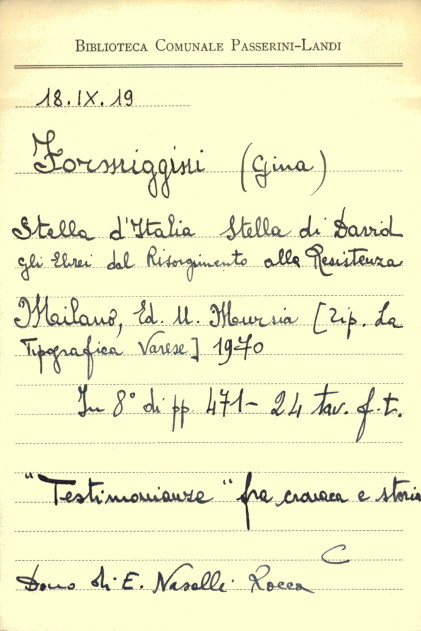 BIBLIOTECA COMUNALE PASSERINI-LANDI
18.IX.19
Formiggini (Gina)
Stella d'Italia Stella di David
gli Ebrei dal Risorgimento alla Resistenza
Milano, Ed. U. Mursia [Tip. La
Tipografica Varese] 1970
In 8° di pp. 471 - 24 tav. f.t.
"Testimonianze" fra cronaca e storia
C
Dono di E. Naselli Rocca